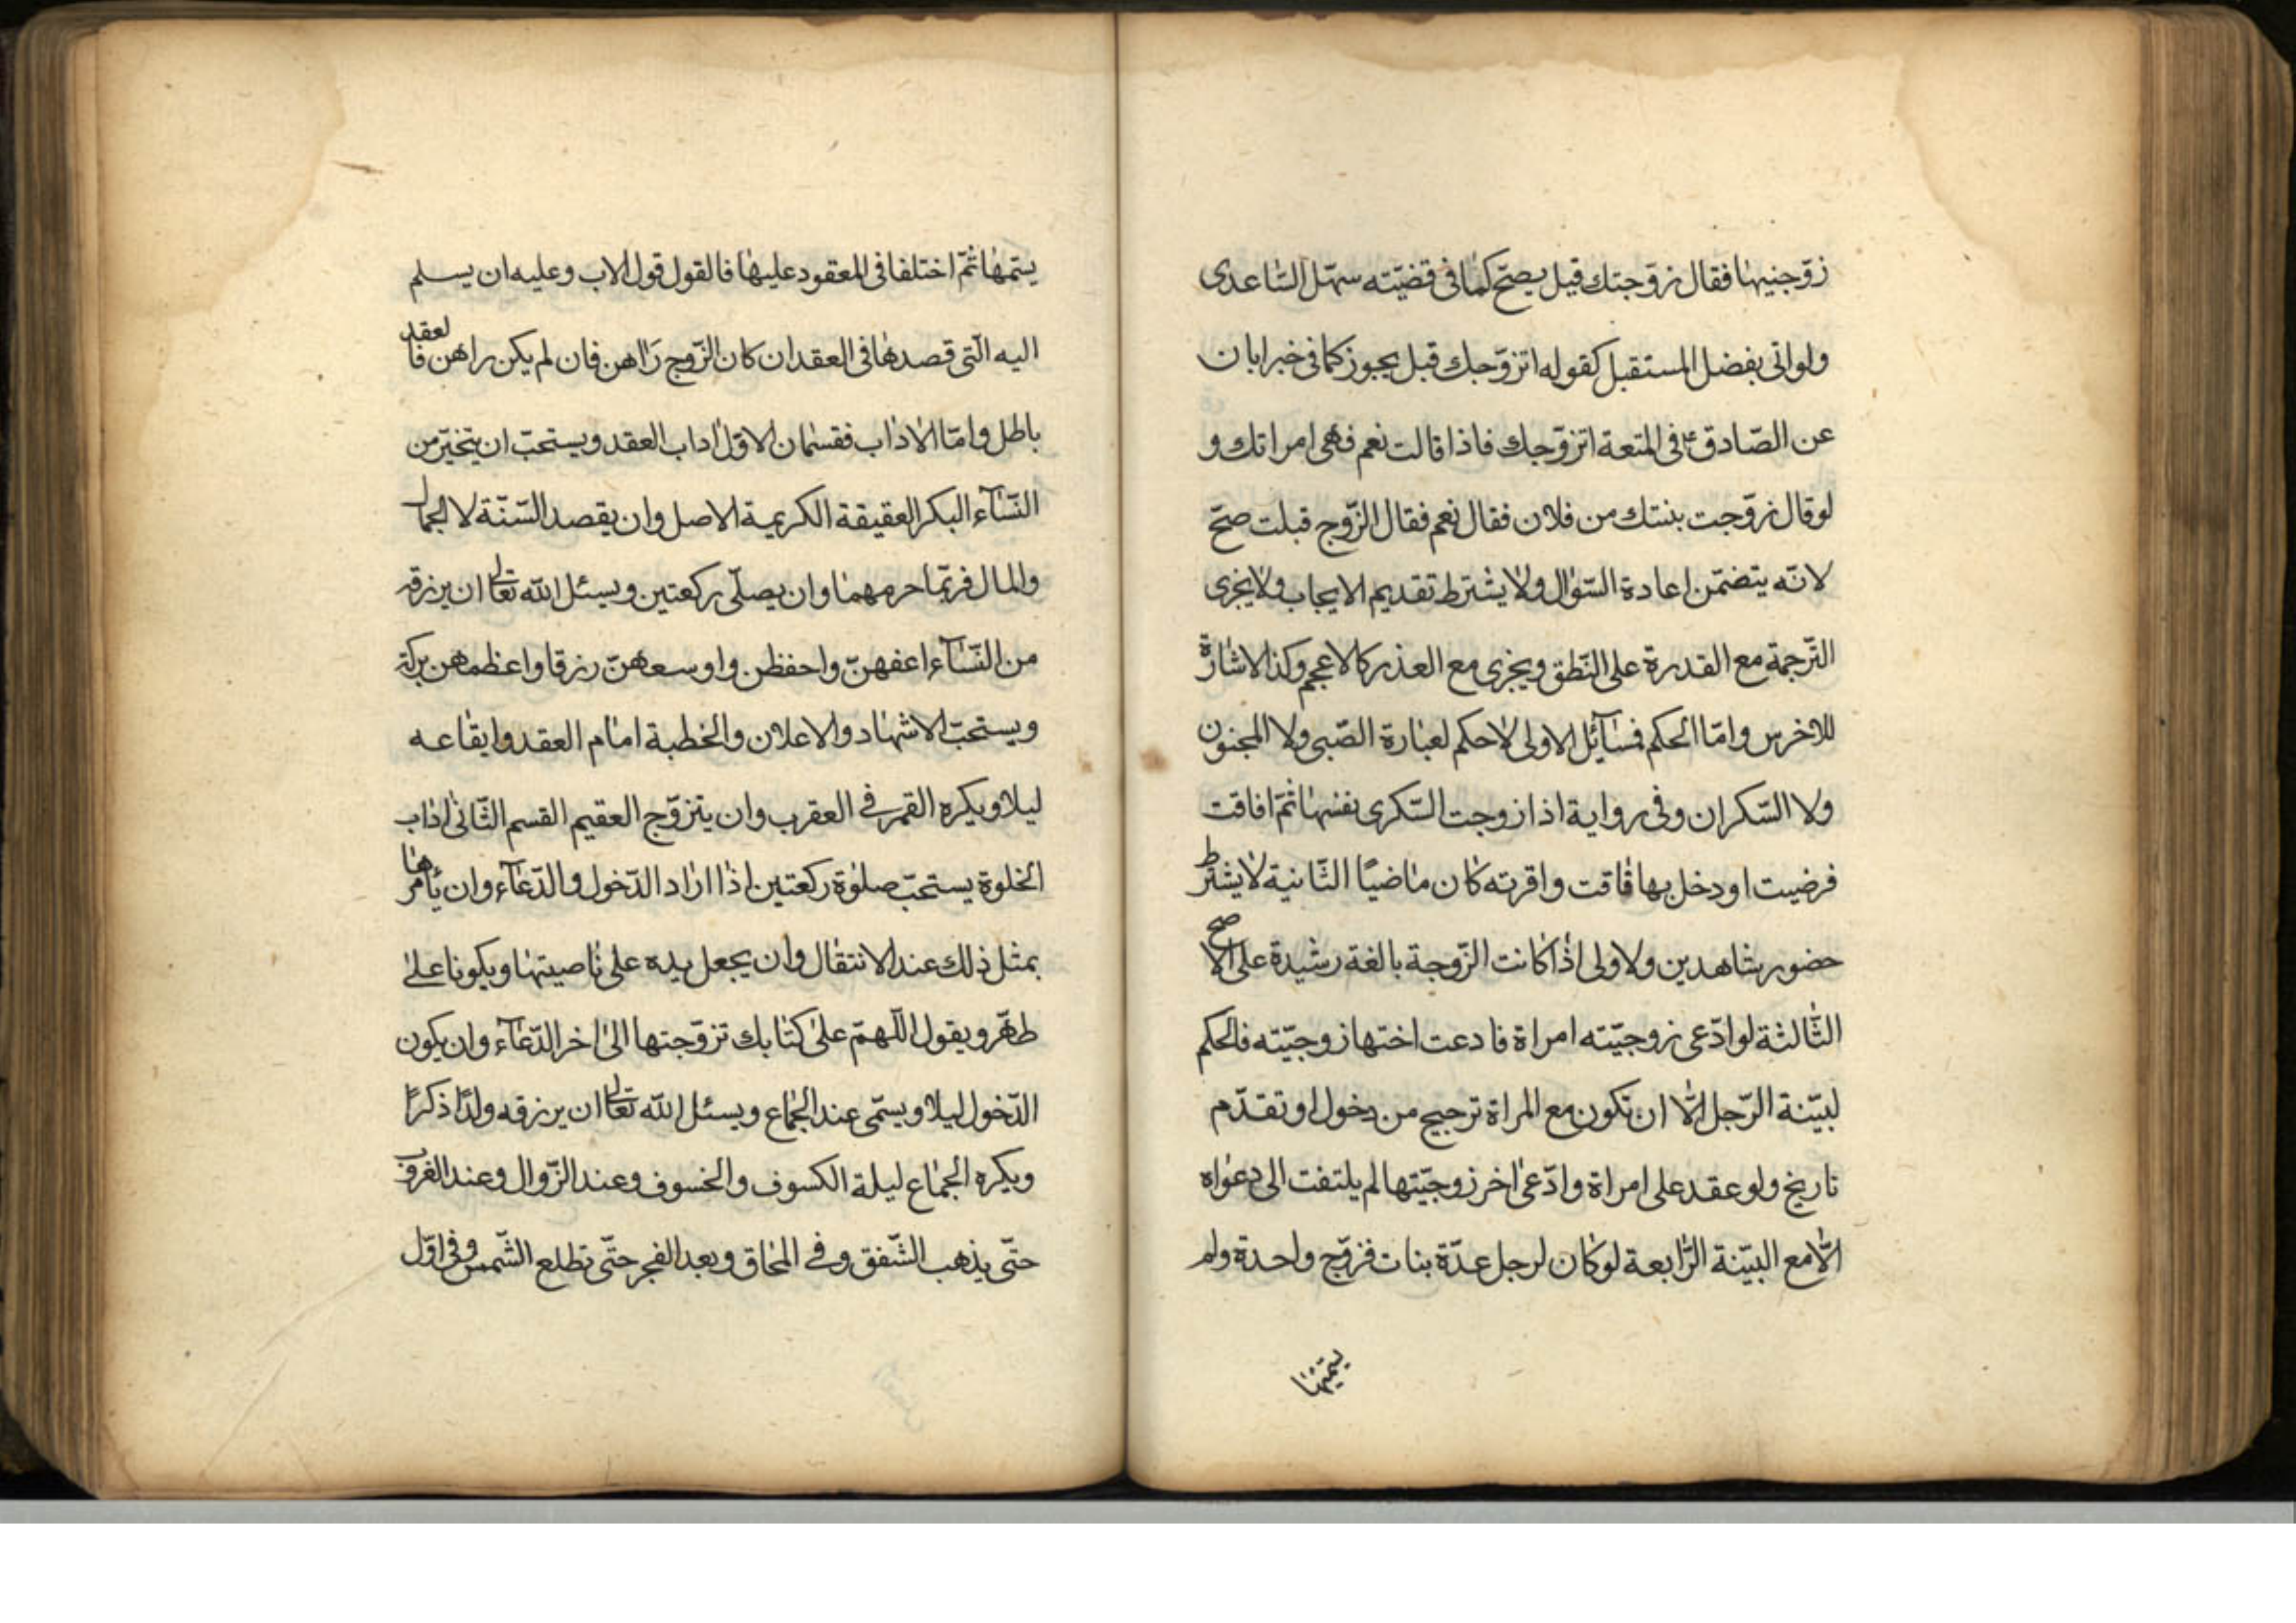 زوّجنيها فقال زوّجتك قيل يصحّ كما في قضيّته سهّل السّاعدى
ولو اتى بفضل المستقبل كقوله اتزوّجك قبل يجوز كما في خبر ابان
عن الصّادق ع في المتعة اتزوّجك فاذا قالت نعم فهى امراتك و
لو قال زوّجت بنتك من فلان فقال نعم فقال الزّوج قبلت صحّ
لانّه يتضمّن اعادة السّوال ولا يشترط تقديم الايجاب ولا يجزى
التّرجمة مع القدرة على النّطق ويجزى مع العذر كالاعجم وكذا الاشارة
للاخرس وامّا الحكم فمسآئل الاولى لا حكم لعبارة الصّبى ولا المجنون
ولا السّكران وفى رواية اذا زوجت السّكرى نفسها ثمّ افاقت
فرضيت او دخل بها فاقت واقرته كان ماضيًا الثّانية لا يشترط
حضور شاهدين ولا ولى اذا كانت الزّوجة بالغة رشيدة على الاصح
الثّالثة لو ادّعى زوجيّته امراة فادعت اختها زوجيّته فالحكم
لبيّنة الرّجل الّا ان تكون مع المراة ترجيح من دخول او تقدّم
تاريخ ولو عقد على امراة وادّعى اخر زوجيّتها لم يلتفت الى دعواه
الّا مع البيّنة الرّابعة لو كان لرجل عدّة بنات فزوّج واحدة ولم
يسمّها
يسمّها ثمّ اختلفا في المعقود عليها فالقول قول الاب وعليه ان يسلم
اليه الّتى قصدها في العقد ان كان الزّوج رَاهن فان لم يكن راهن فالعقد
باطل وامّا الاداب فقسمان الاوّل اداب العقد ويستحبّ ان يتخيّر من
النّسآء البكر العقيقة الكريمة الاصل وان يقصد السّنّة لا الجمال
والمال فربّما حرمهما وان يصلّى ركعتين ويسئل الله تعالى ان يرزقه
من النّسآء اعفهنّ واحفظن واوسعهنّ رزقا واعظمهن بركة
ويستحبّ الاشهاد والاعلان والخطبة امام العقد وايقاعه
ليلا ويكره القمر في العقرب وان يتزوّج العقيم القسم الثّانى اداب
الخلوة يستحبّ صلوة ركعتين اذا اراد الدّخول والدّعآء وان يأمرها
بمثل ذلك عند الانتقال وان يجعل يده على ناصيتها ويكونا على
طهّر ويقول اللّهمّ على كتابك تزوّجتها الى اخر الدّعآء وان يكون
الدّخول ليلا ويسمّى عند الجماع ويسئل الله تعالى ان يرزقه ولدًا ذكرًا
ويكره الجماع ليلة الكسوف والخسوف وعند الزّوال وعند الغروب
حتّى يذهب الشّفق وفي المحاق وبعد الفجر حتّى تطلع الشّمس وفي اوّل